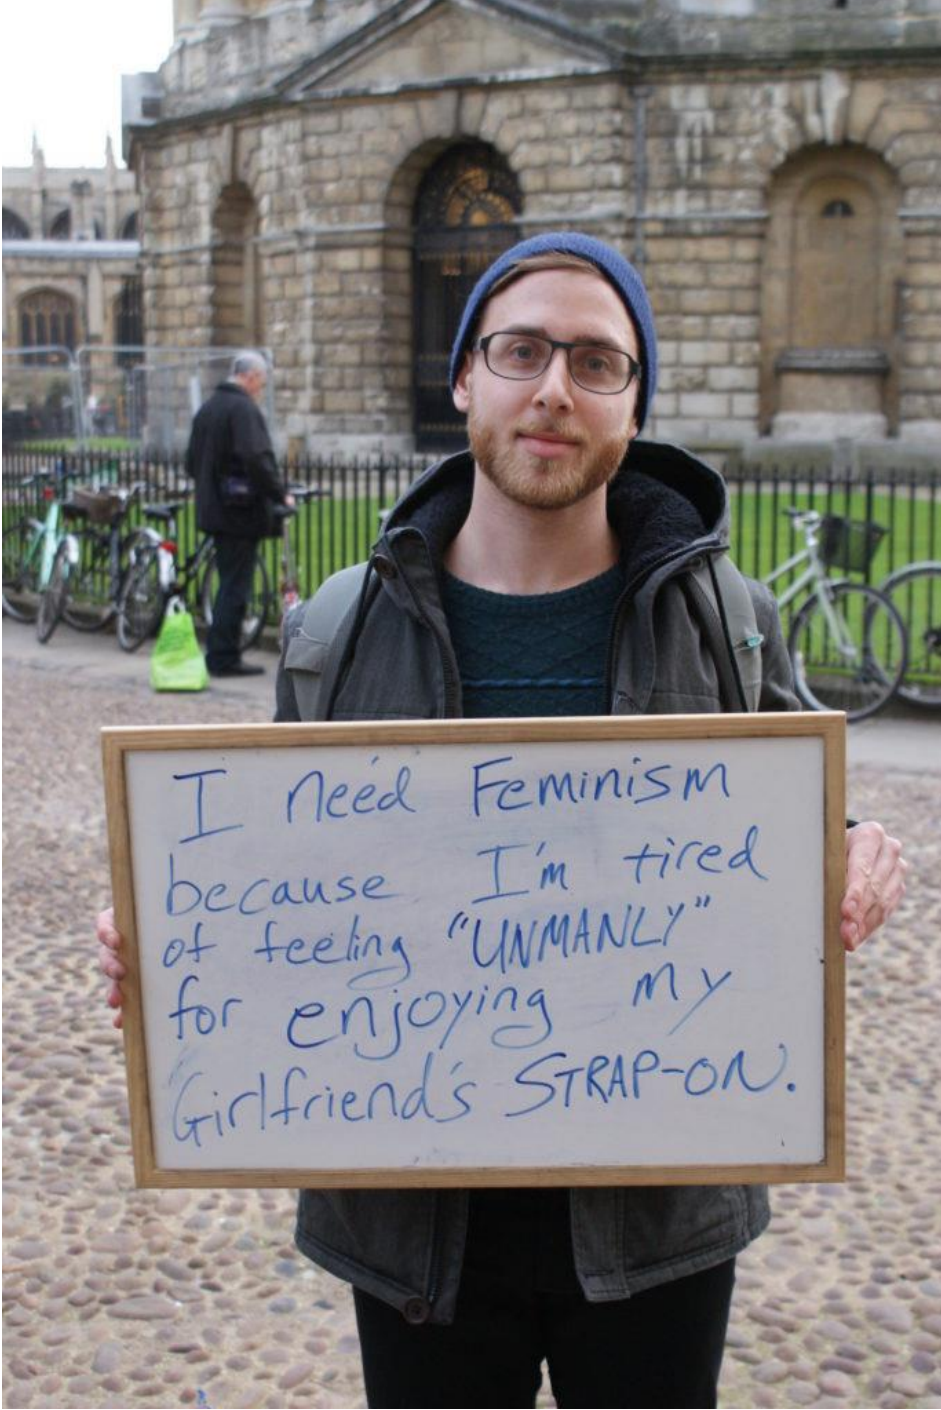 I need Feminism
because I'm tired
of feeling "UNMANLY"
for enjoying my
Girlfriend's STRAP-ON.